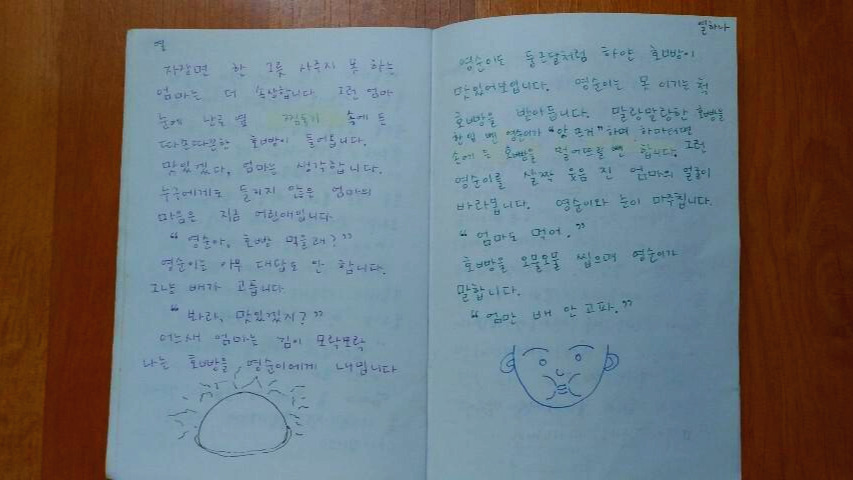 열
자장면 한 그릇 사주지 못 하는
엄마는 더 속상합니다. 그런 엄마
눈에 난로 옆 찜통기 속에 든
따끈따끈한 호빵이 들어옵니다.
맛있겠다, 엄마는 생각합니다.
누구에게도 들리지 않은 엄마의
마음은 지금 어린애입니다
“영순아, 호빵 먹을래?”
영순이는 아무 대답도 안 합니다.
그냥 배가 고픕니다
“봐라, 맛있겠지?”
어느새 엄마는 김이 모락모락
나는 호빵을 영순이에게 내밉니다
열하나
영순이도 둥근달처럼 하얀 호빵이
맛있어보입니다. 영순이는 못 이기는 척
호빵을 받아듭니다. 말랑말랑한 호빵을
한입 벤 영순이가 “앗 뜨거” 하며 하마터면
손에 든 호빵을 떨어뜨릴 뻔 합니다. 그런
영순이를 살짝 웃음 진 엄마의 얼굴이
바라봅니다. 영순이와 눈이 마주칩니다.
“엄마도 먹어.”
호빵을 오물오물 씹으며 영순이가
말합니다.
“엄만 배 안 고파.”